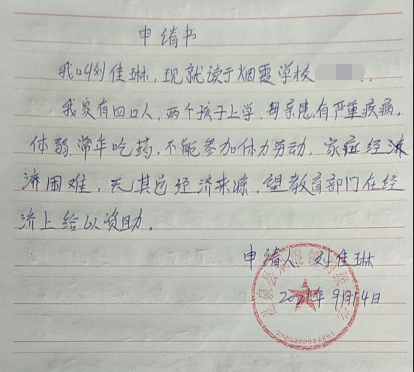 申请书
我叫刘佳琳，现就读于烟霞学校
我家有四口人，两个孩子上学，母亲患有严重疾病，
体弱，常年吃药，不能参加体力劳动，家庭经济
济困难，无其它经济来源，望教育部门在经
济上给以资助。
申请人：刘佳琳
2021年9月14日